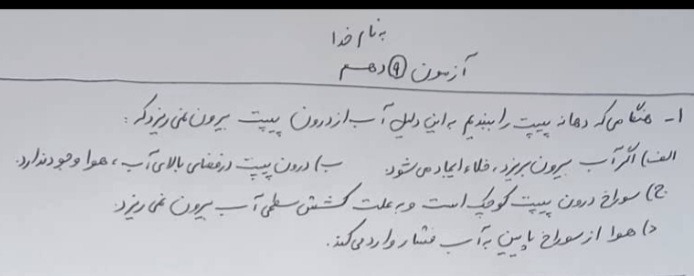 به نام خدا
آزمون ⑨ دهم
۱- هنگامی که دهانه پیپت را ببندیم به این دلیل آب از درون پیپت بیرون نمی ریزد که :
الف) اگر آب بیرون بریزد، خلاء ایجاد می شود. ب) درون پیپت در فضای بالای آب، هوا وجود ندارد.
ج) سوراخ درون پیپت کوچک است و به علت کشش سطحی آب بیرون نمی ریزد.
د) هوا از سوراخ پایین به آب فشار وارد می کند.